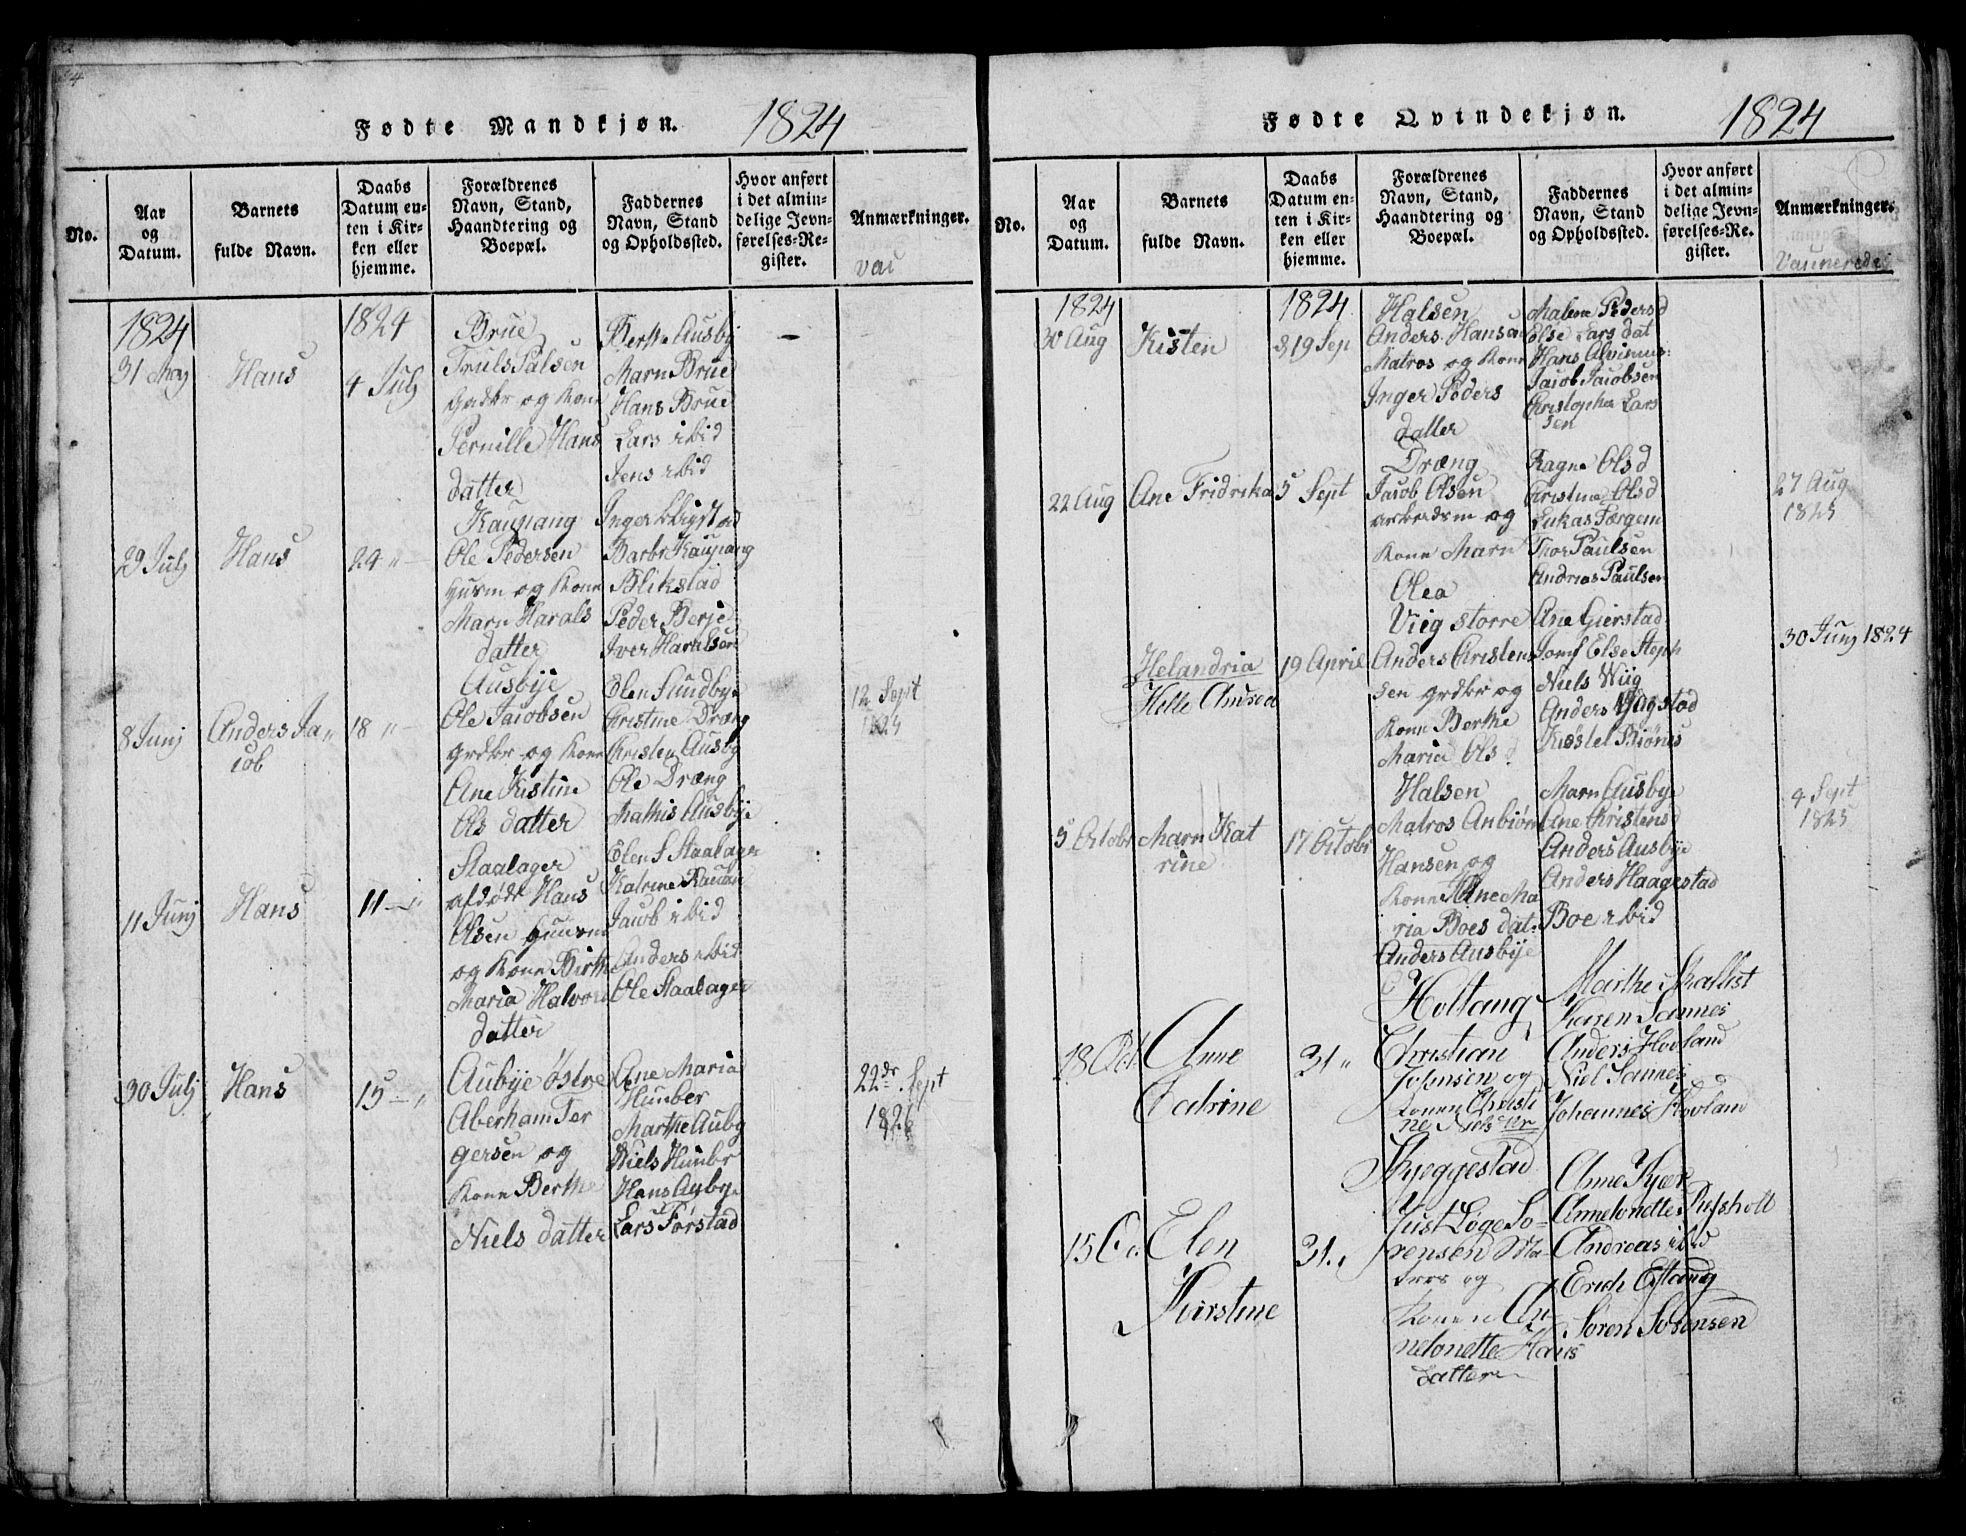 Fødte Mandkjøn. 1824
No.
Aar
og
Datum.
Barnets
fulde Navn.
Daabs
Datum en-
ten i Kir-
ken eller
hjemme.
Forældrenes
Navn, Stand,
Haandtering og
Boepæl.
Faddernes
Navn, Stand
og Opholdssted.
Hvor anført
i det almin-
delige Jevn-
førelses-Re-
gister.
Anmærkninger.
vac
1824
31 May
Hans
1824
4 July
Brue
Truls Palsen
grdkr og Kone
Pernille Hans
datter
Berthe Ausby
Marn Brue
Hans Brue
Lars ibid
Jens ibid
29 July
Hans
29 "
Kaupang
Ole Pedersen
husm og Kone
Marn Harals
datter
Inger Bligstad
Barbr Kaupang
Blikstad
Peder Berje
Iver Harnlsen
8 Junj
Anders Ja"
cob
18 "
Ausbye
Ole Jacobsen
grdkr og Kone
Ane Kistine
Ols datter
Elen Sundbye
Christine Dræng
Christen Ausby
Ole Dræng
Mathis Ausbye
12 Sept
11 Junj
Hans
11 "
Staalager
afdøde Hans
Olsen huusm
og Kone Birthe
Maria Halvors
datter
Elen S Staalager
Katrine Rauan
Jacob ibid
Anders ibid
Ole Staalager
30 July
Hans
15 "
Aubye østre
Aberham Ter
gersen og
Kone Berthe
Niels datter
Ane Maria
Hunber
Marthe Auby
Niels Hunbr
Hans Aubye
Lars Førstad
22dr Sept
1826
Fødte Qvindekjøn. 1824
No.
Aar
og
Datum.
Barnets
fulde Navn.
Daabs
Datum en-
ten i Kir-
ken eller
hjemme.
Forældrenes
Navn, Stand,
Haandtering og
Boepæl.
Faddernes
Navn, Stand
og Opholdssted.
Hvor anført
i det almin-
delige Jevn-
førelses-Re-
gister.
Anmærkninger.
Vaxinerede
1824
30 Aug
Kisten
1824
19 Sep
Halsen
Anders Hansen
Matros og Kone
Inger Peders
datter
Malene Pedersd
Else Lars dat
Hans
Jacob Jacobsen
Christopher Lars
sen
22 Aug
Ane Fridrika
5 Sept
Dræng
Jacob Olsen
arbeidsm og
Kone Marn
Olea
Ragne Olsd
Christine Olsd
Lukas Færgem
Thor Paulsen
Andrias Paulsen
27 Aug
1825
Helandria
Helle Andrea
19 April
Viig storre
Anders Christen
sen grdkr og
Kone Berthe
Maria Ols d
Ane Gierstad
Jomf Else Steph
Niels Wiig
Anders Hagstad
Kiøstel Biønes
30 Junj 1824
5 Octobr
Marn Kat
rine
17 Octobr
Halsen
Matros Anbiørn
Hansen og
Kone Ane Ma
ria Boes dat.
Anders Ausbye
Marn Ausbye
Ane Christensd
Anders Ausbye
Anders Haagestad
Boe ibid
4 Sept
1825
18 Oct
Anne
Catrine
31 "
Holtang
Christian
og
Konen Christi
ne Niels dtr
Marthe Skallist
Karen Sannes
Anders Hovland
Niel Sannes
Johannes Hovland
15 Oc.
Elen
Kirstine
31 "
Skieggestad
Just Løge So-
rensen Ma-
tros og
Konen An
netonette Hans
datter
Anne Kjær
Annetonette Rufsholt
Andreas ibid
Erich Eftang
Soren Sorensen